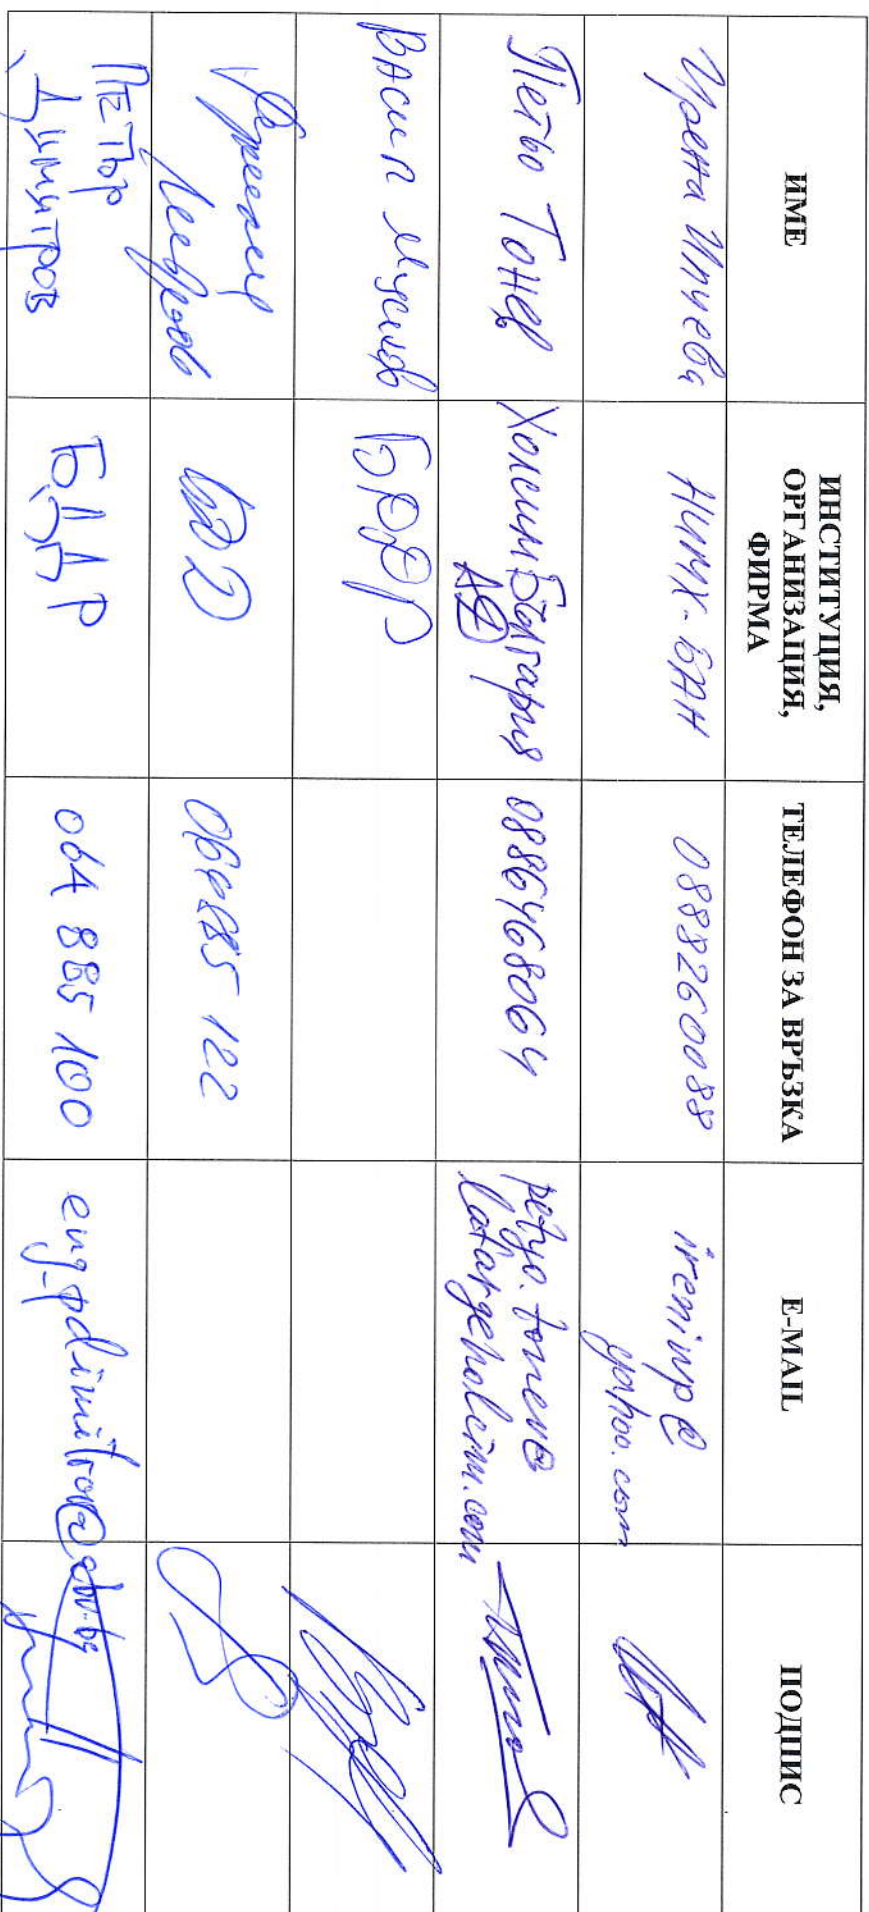 ИМЕ
ИНСТИТУЦИЯ,
ОРГАНИЗАЦИЯ,
ФИРМА
ТЕЛЕФОН ЗА ВРЪЗКА
E-MAIL
ПОДПИС
Ирена Илчева
НИМХ-БАН
0888260088
irenivp@
yahoo.com
Петьо Тонев
Холсим България
АД
0886468064
petyo.tonev@
lafargeholcim.com
Васил
БДДР
064885 122
ПЕТЪР
ДИМИТРОВ
БДДР
064 885 100
eng_pdimitrov@abv.bg